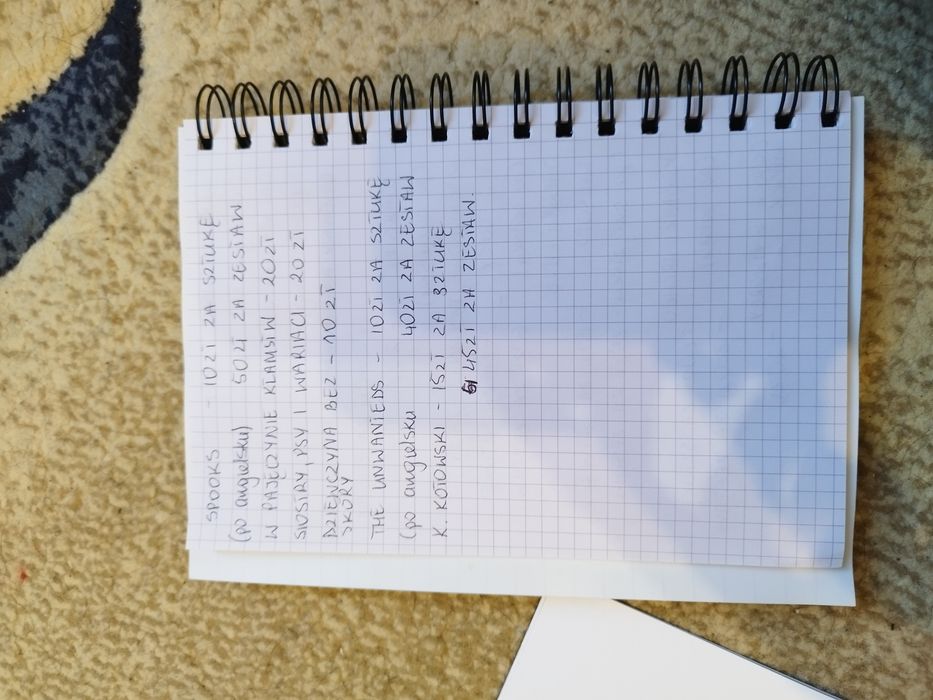 SPOOKS - 10ZŁ ZA SZTUKĘ
(po angielsku) 50ZŁ ZA ZESTAW
W PAJĘCZYNIE KŁAMSTW - 20ZŁ
SIOSTRY, PSY I WARIACI - 20ZŁ
DZIEWCZYNA BEZ - 10 ZŁ
SKÓRY
THE UNWANTEDS - 10ZŁ ZA SZTUKĘ
(po angielsku 40ZŁ ZA ZESTAW
K. KOTOWSKI - 15ZŁ ZA SZTUKĘ
45ZŁ ZA ZESTAW.